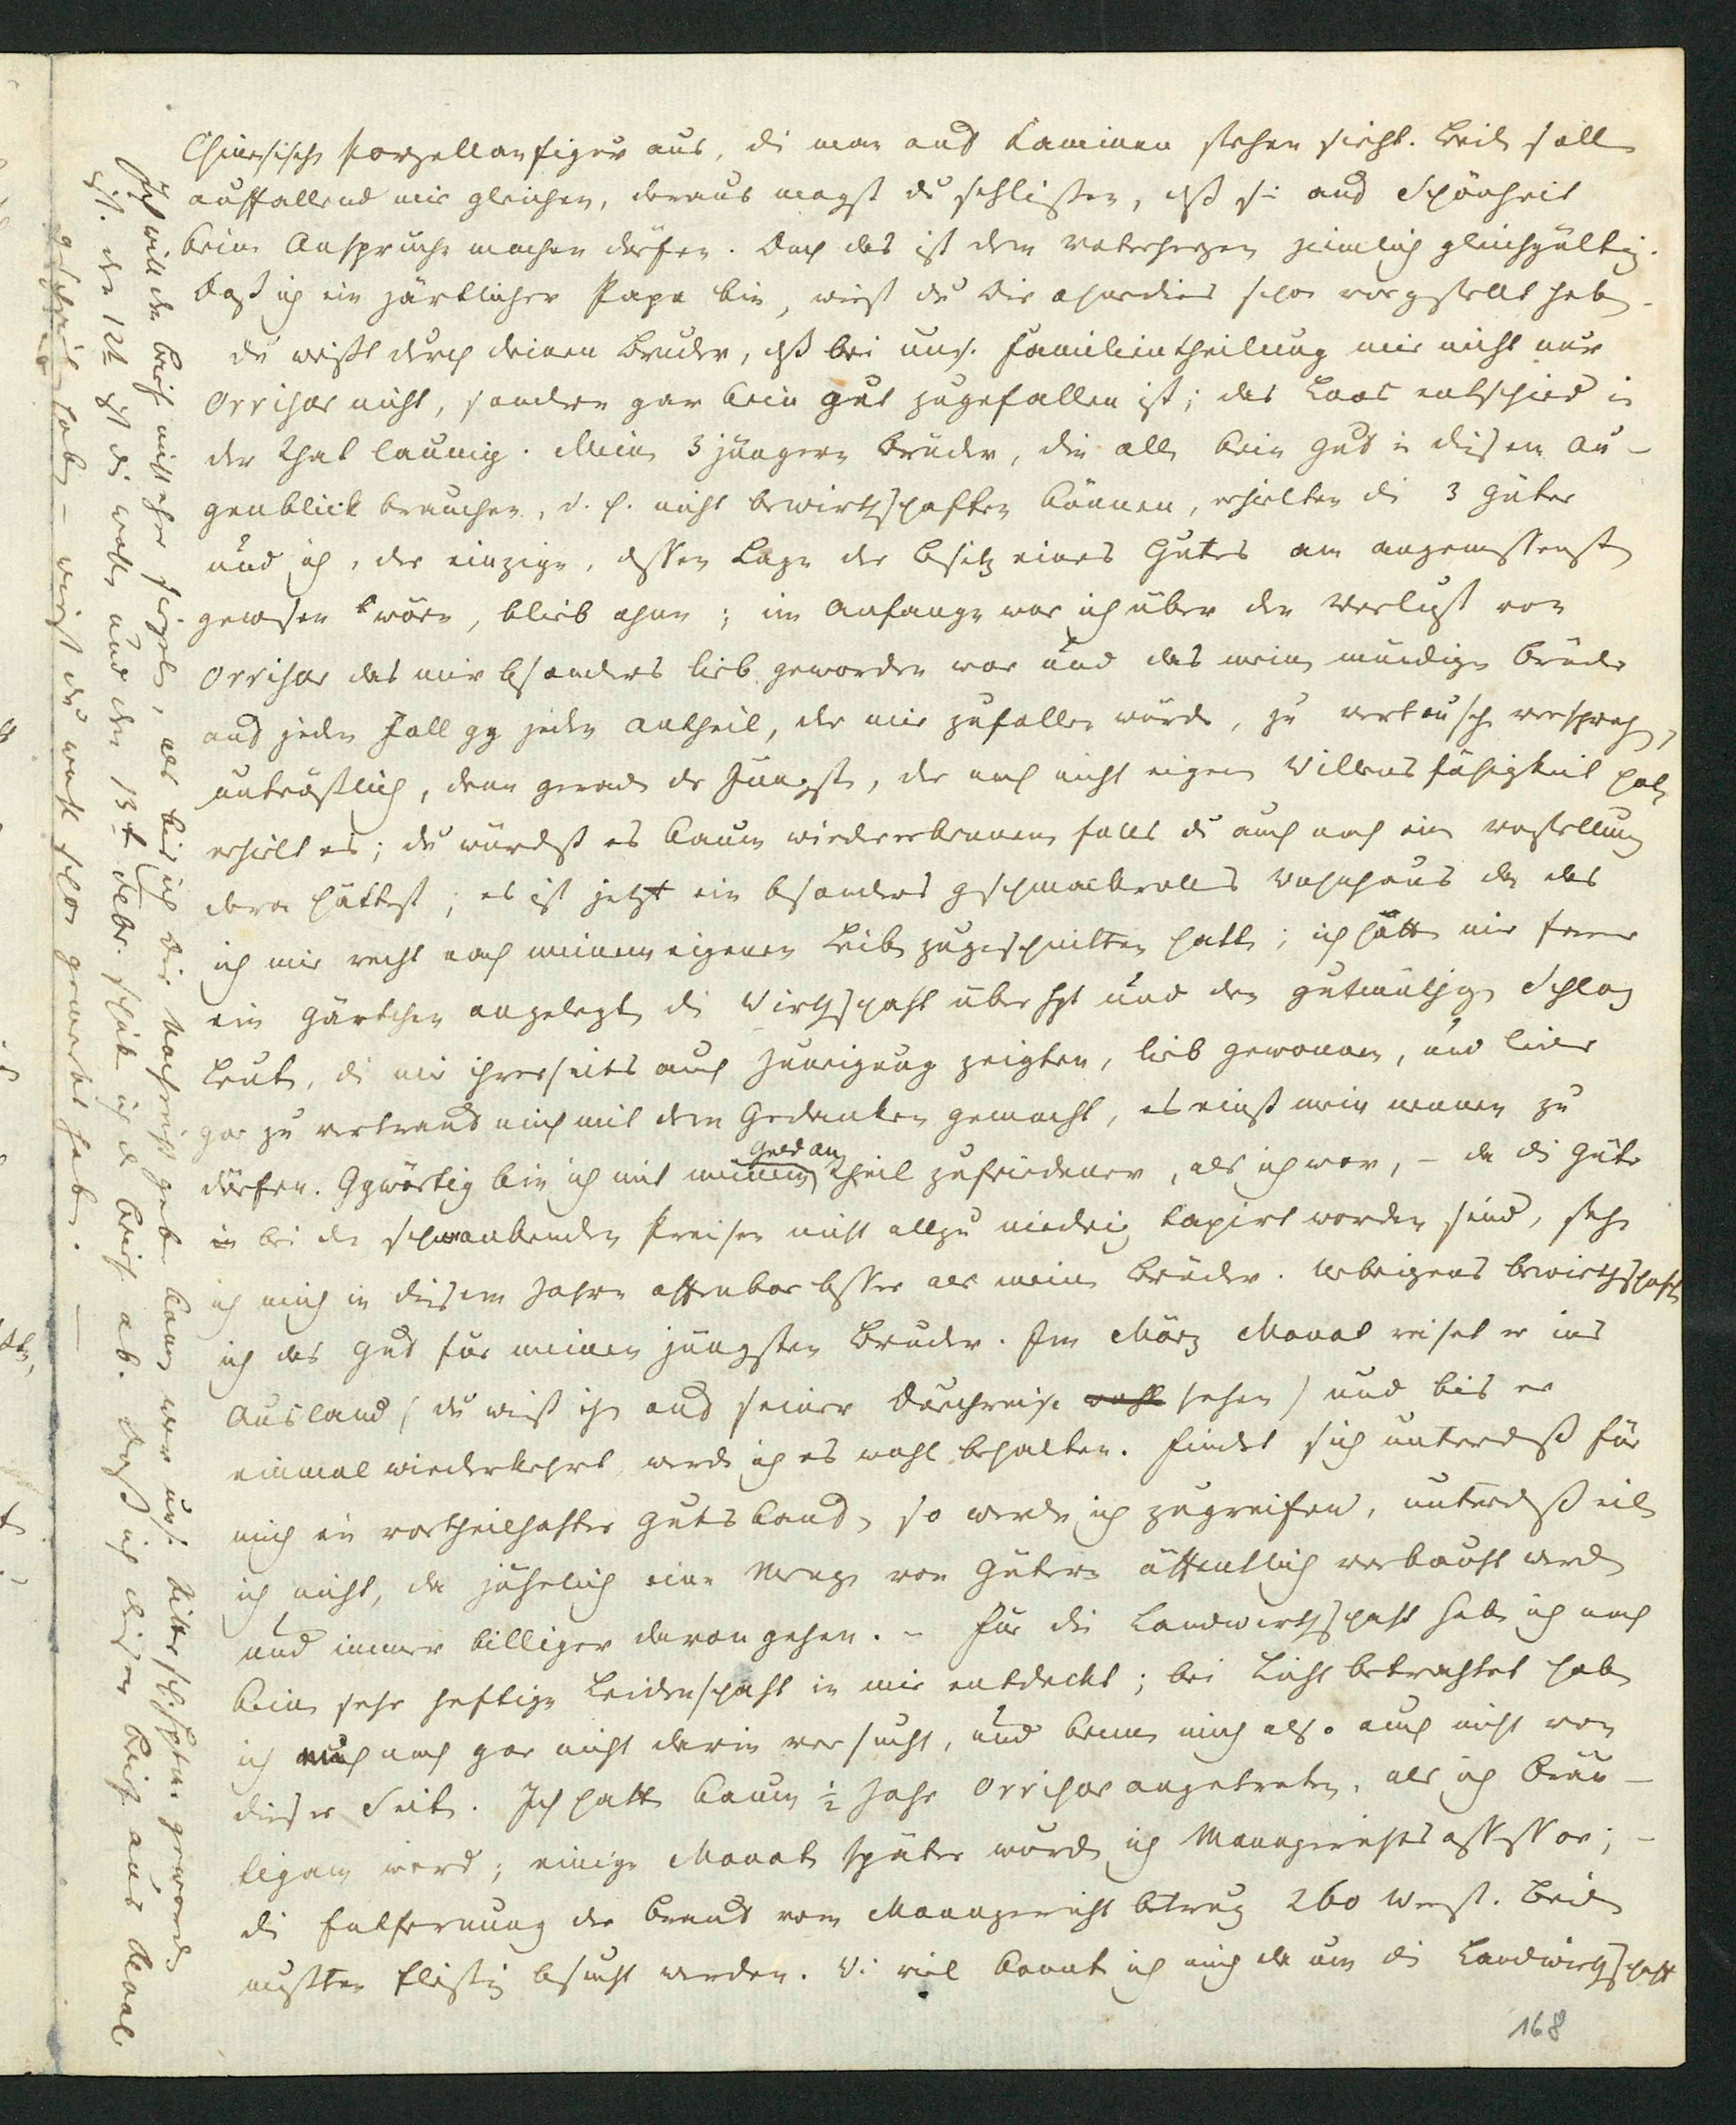 Chinesische Porzellanfigur aus, die man auf Kaminen stehen sieht. Beide sollen
auffallend mir gleichen, daraus magst du schließen, daß sie auf Schönheit
keine Ansprüche machen dürfen. Doch das ist dem Vaterherzen ziemlich gleichgültig.
Daß ich ein zärtlicher Papa bin, wirst du Dir ohnedies schon vorgestellt haben.
Du weißt durch deinen Bruder, daß bei uns. Familientheilung mir nicht nur
Orrisar nicht, sondern gar kein Gut zugefallen ist; das Loos entschied in
der That launig. Meine 3 jüngern Brüder, die alle kein Gut in diesem Au-
genblick brauchen, d. h. nicht bewirthschaften können, erhielten die 3 Güter
und ich, der einzige, dessen Lage der Besitz eines Gutes am angemessensten
gewesen wäre, blieb ohne; im Anfange war ich über den Verlust von
Orrisar das mir besonders lieb geworden war und das meine mündigen Brüder
auf jeden Fall gg jeden Antheil, der mir zufallen würde, zu vertauschen versprachen,
untröstlich, denn gerade der Jüngste, der noch nicht eigene Willensfähigkeit hat,
erhielt es; du würdest es kaum wiedererkennen falls du auch noch eine Vorstellung
davon hättest; es ist jetzt ein besonders geschmackvolles Wohnhaus da das
ich mir recht nach meinem eigenen Leibe zugeschnitten hatte; ich hatte mir ferner
ein Gärtchen angelegt, die Wirthschaft überhpt und den gutmüthigen Schlag
Leute, die mir ihrerseits auch Zuneigung zeigten, lieb gewonnen, und leider
gar zu vertraut mich mit dem Gedanken gemacht, es einst mein nennen zu
dürfen. Ggwärtig bin ich mit meinem Geldantheil zufriedener, als ich war, – da die Güter
bei den schwankenden Preisen nicht allzu niedrig taxirt worden sind, stehe
ich mich in diesem Jahre offenbar besser als meine Brüder. Uebrigens bewirthschafte
ich das Gut für meinen jüngsten Bruder. Im März Monat reiset er ins
Ausland (du wirst ihn auf seiner Durchreise wohl sehen) und bis er
einmal wiederkehrt, werde ich es wohl behalten. Findet sich unterdeß für
mich ein vortheilhafter Gutskauf, so werde ich zugreifen, unterdeß eile
ich nicht, da jährlich eine Menge von Gütern öffentlich verkauft werden
und immer billiger davon gehen. – Für die Landwirthschaft habe ich noch
keine sehr heftige Leidenschaft in mir entdeckt; bei Licht betrachtet habe
ich mich noch gar nicht darin versucht, und kenne mich also auch nicht von
dieser Seite. Ich hatte kaum ½ Jahr Orrisar angetreten, als ich Bräu-
tigam ward; einige Monate später wurde ich Manngerichtsassessor; –
die Entfernung der Braut vom Manngericht betrug 260 Werst. Beide
mußten fleißig besucht werden. Wie viel konnte ich mich da um die Landwirthschaft
168
Ich will den Brief nicht eher siegeln, als bis ich Dir Nachricht geben kann, wer uns. Ritterschafts geworden
ist. Den 12t ist die Wahl und den 13t Febr. schicke ich den Brief ab. Daß ich diesen Brief aus Reval
geschrieben habe – wirst du wohl schon gemerkt haben. –